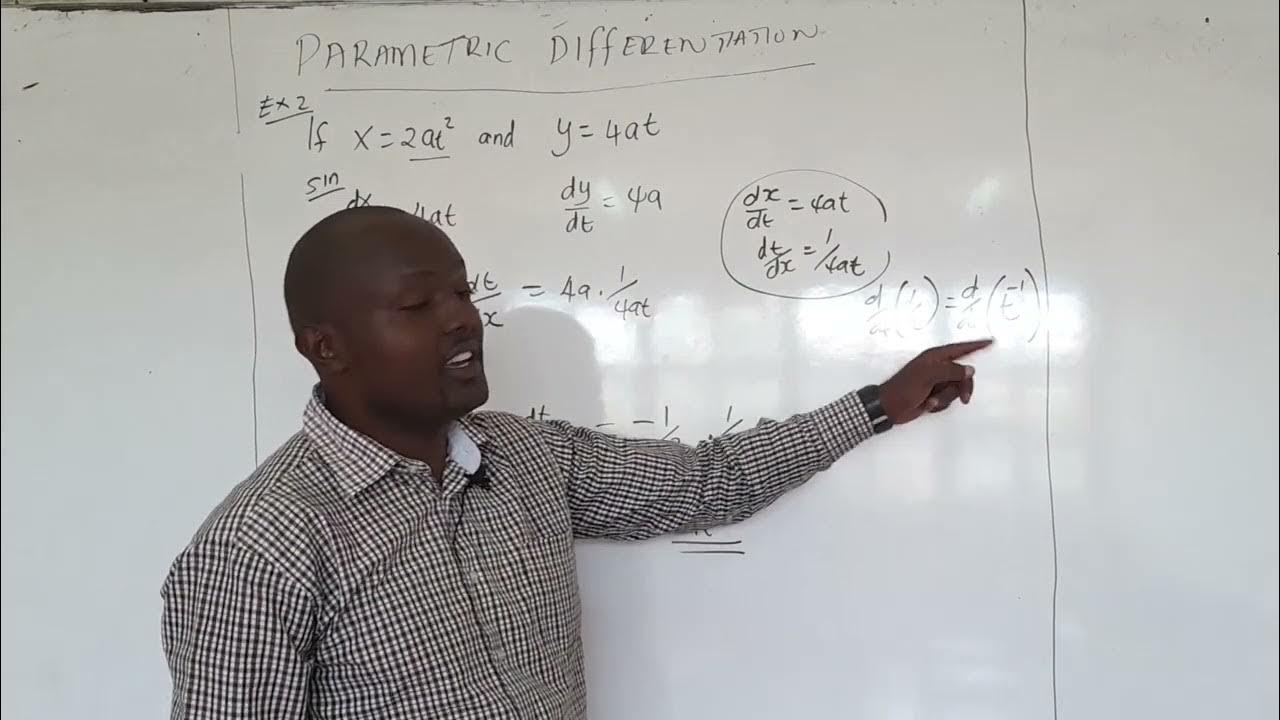 PARAMETRIC DIFFERENTIATION
Ex 2
If x = 2at² and y = 4at
Sin
dx 4at
dy/dt = 4a
dx/dt = 4at
dt/dx = 1/4at
dt/x = 4a · 1/4at
d (1/t) = d (t⁻¹)
dt = -1/ · 1/